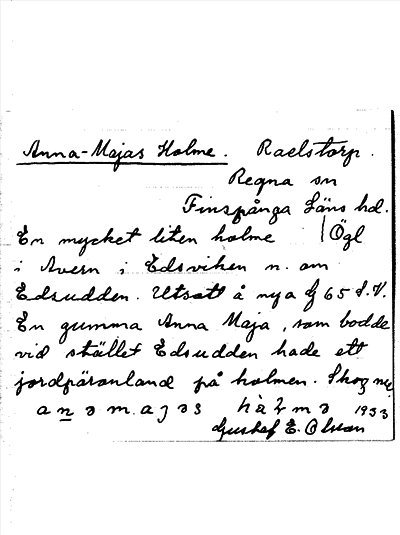 Anna-Majas Holme. Raelstorp.
Regna sn
Finspånga Läns hd.
En mycket liten holme Ögl.
i Avern i Edsviken n. om
Edsudden. Utsatt å nya G 65 S.V.
En gumma Anna Maja, som bodde
vid stället Edsudden hade ett
jordpäronland på holmen. Skog nu.
1933
Gustaf E. Olsson